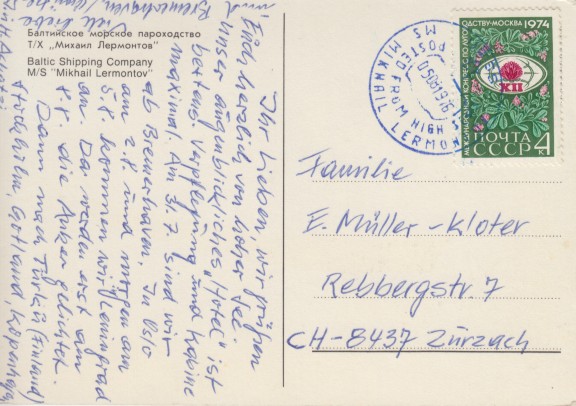 Балтийское морское пароходство
Т/Х „Михаил Лермонтов"
Baltic Shipping Company
M/S "Mikhail Lermontov"
Ihr Lieben, wir grüßen
Euch herzlich von hoher See.
unser augenblickliches „Hotel" ist
bestens. Verpflegung und Kabine
maximal. Am 31.7 sind wir
ab Bremerhaven. In Oslo
am 2.8. und morgen am
5.8. kommen wir in Leningrad
an. Da werden erst am
8.8. die Anker gelichtet.
Dann nach Turku (Finnland)
Stockholm, Gotland, Kopenhagen
Bremerhaven
Viele liebe
POSTED FROM HIGH
MS MIKHAIL LERMON
МЕЖДУНАРОДНЫЙ КОНГРЕСС ПО
ОДСТВУ·МОСКВА 1974
XII
ПОЧТА
СССР
4к
Familie
E. Müller-Kloter
Rebbergstr. 7
CH-8437 Zürzach